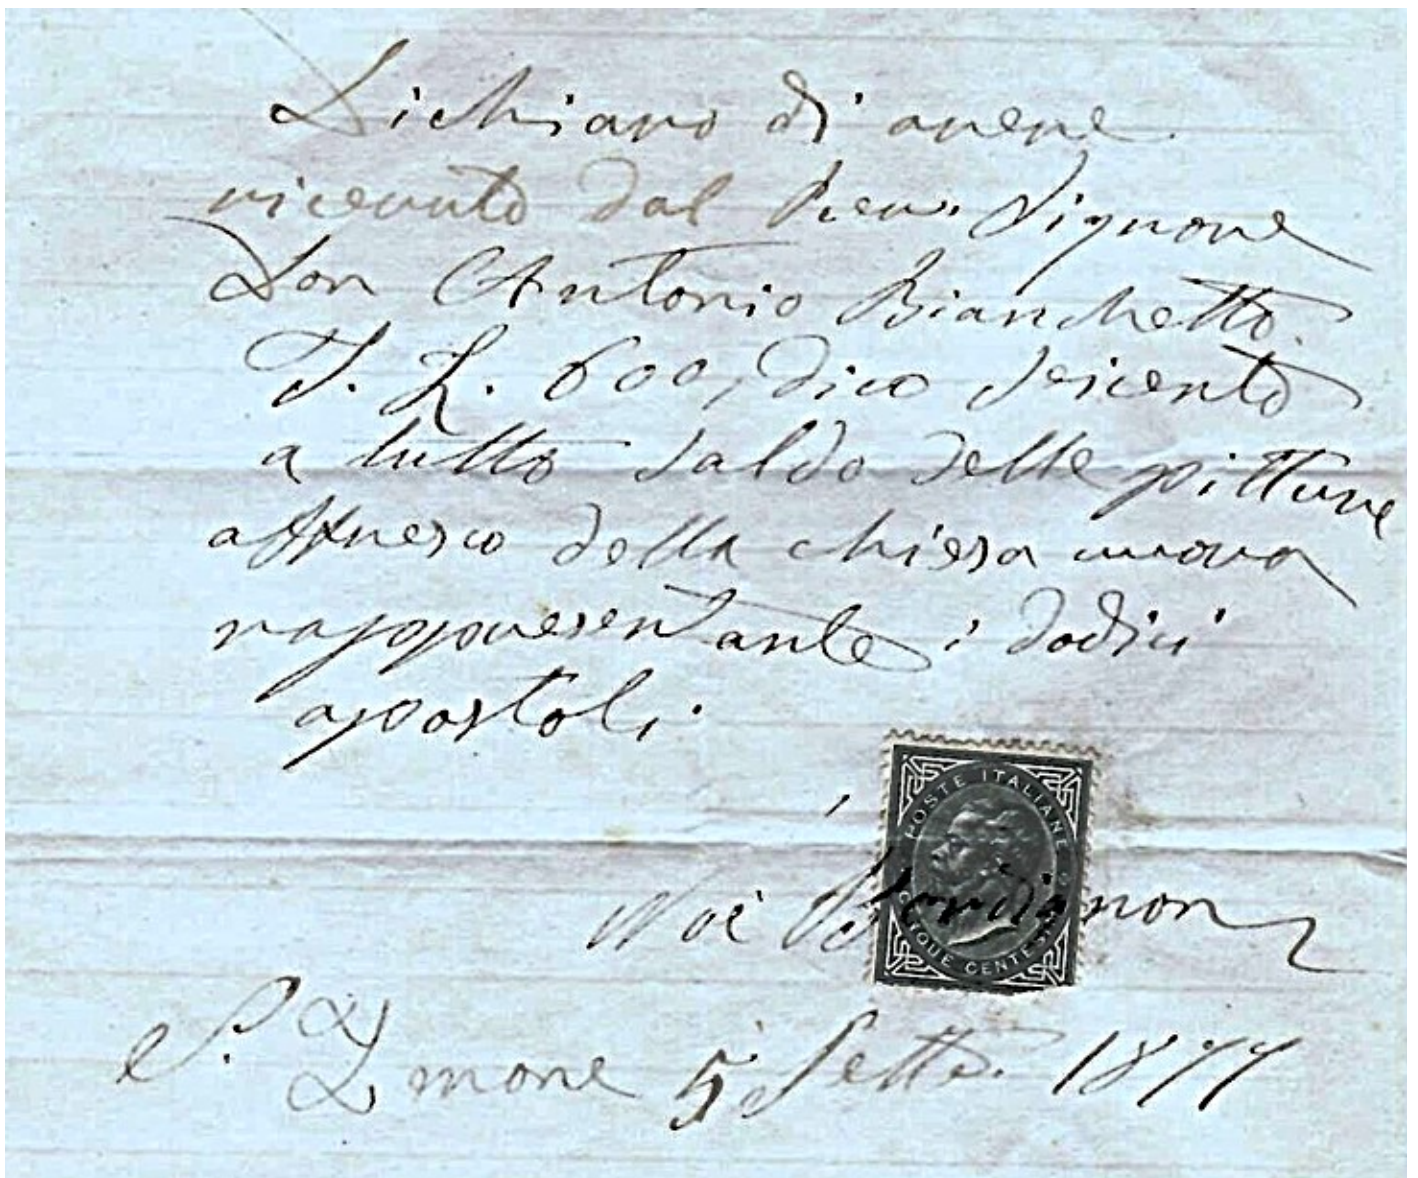 Dichiaro di avere
ricevuto dal Rev. Signore
Don Antonio Bianchetto
I. L. 600, dico seicento
a tutto saldo delle pitture
affresco della chiesa nuova
rappresentante i dodici
apostoli.
POSTE ITALIANE
Noè Bordignon
CINQUE CENTESIMI
S. Zenone 5 Sette. 1877